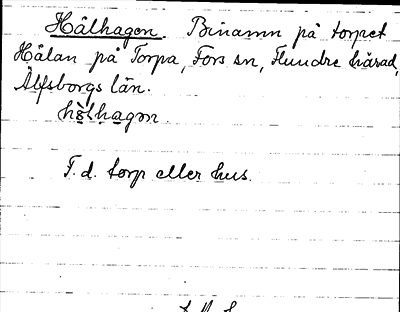 Hålhagen. Binamn på torpet
Hålan på Torpa, Fors sn, Flundre härad,
Älfsborgs län.
hòlhagen.
F.d. torp eller hus.